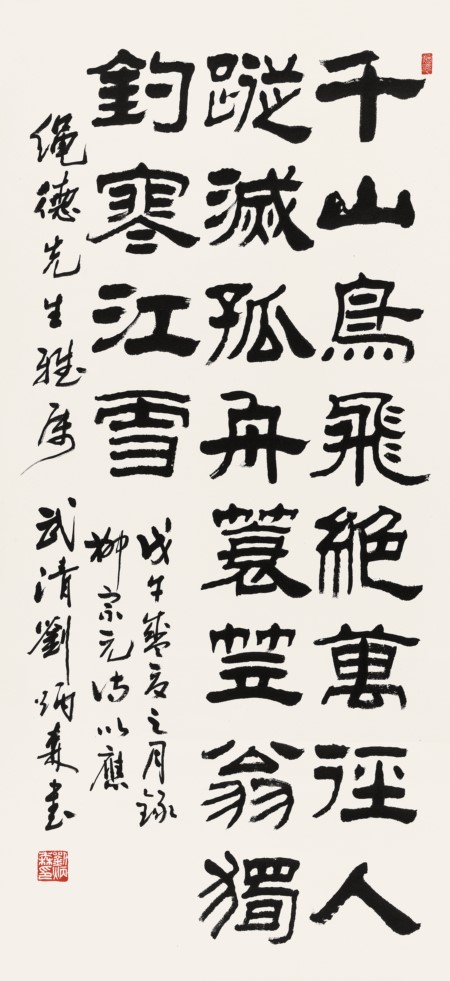 千山鳥飛絕萬徑人
蹤滅孤舟蓑笠翁獨
釣寒江雪
戊午盛夏之月錄
柳宗元诗以應
绳德先生雅属 武清劉炳森书